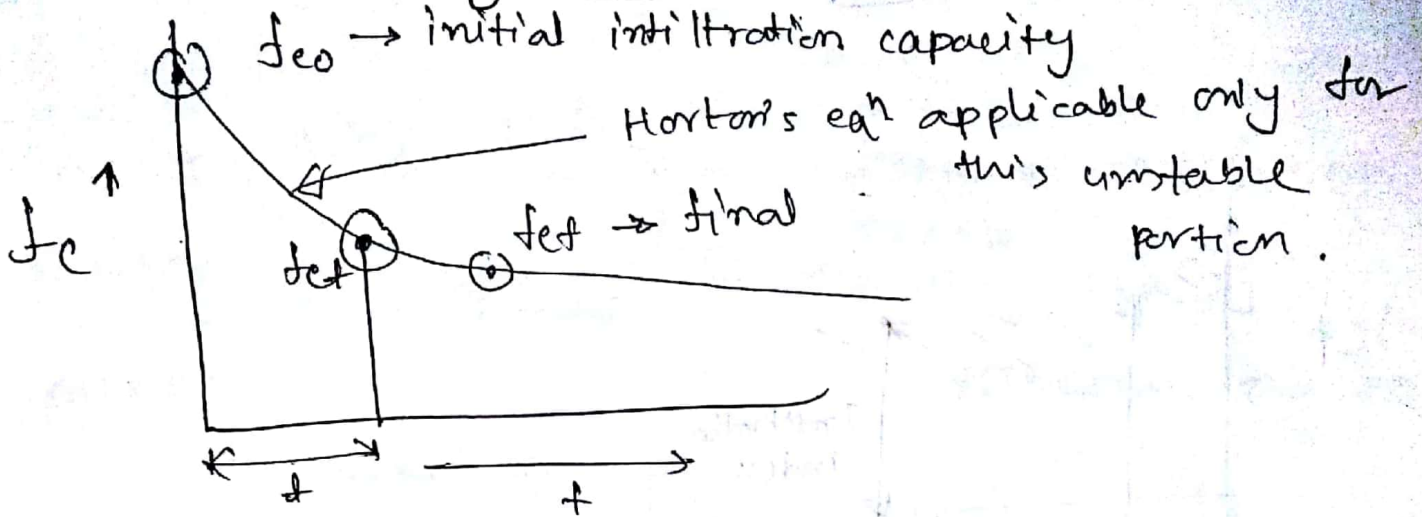 fco → initial infiltration capacity
Horton's eqn applicable only for
this unstable
portion.
fc ↑
fct
fcf → final
t
t